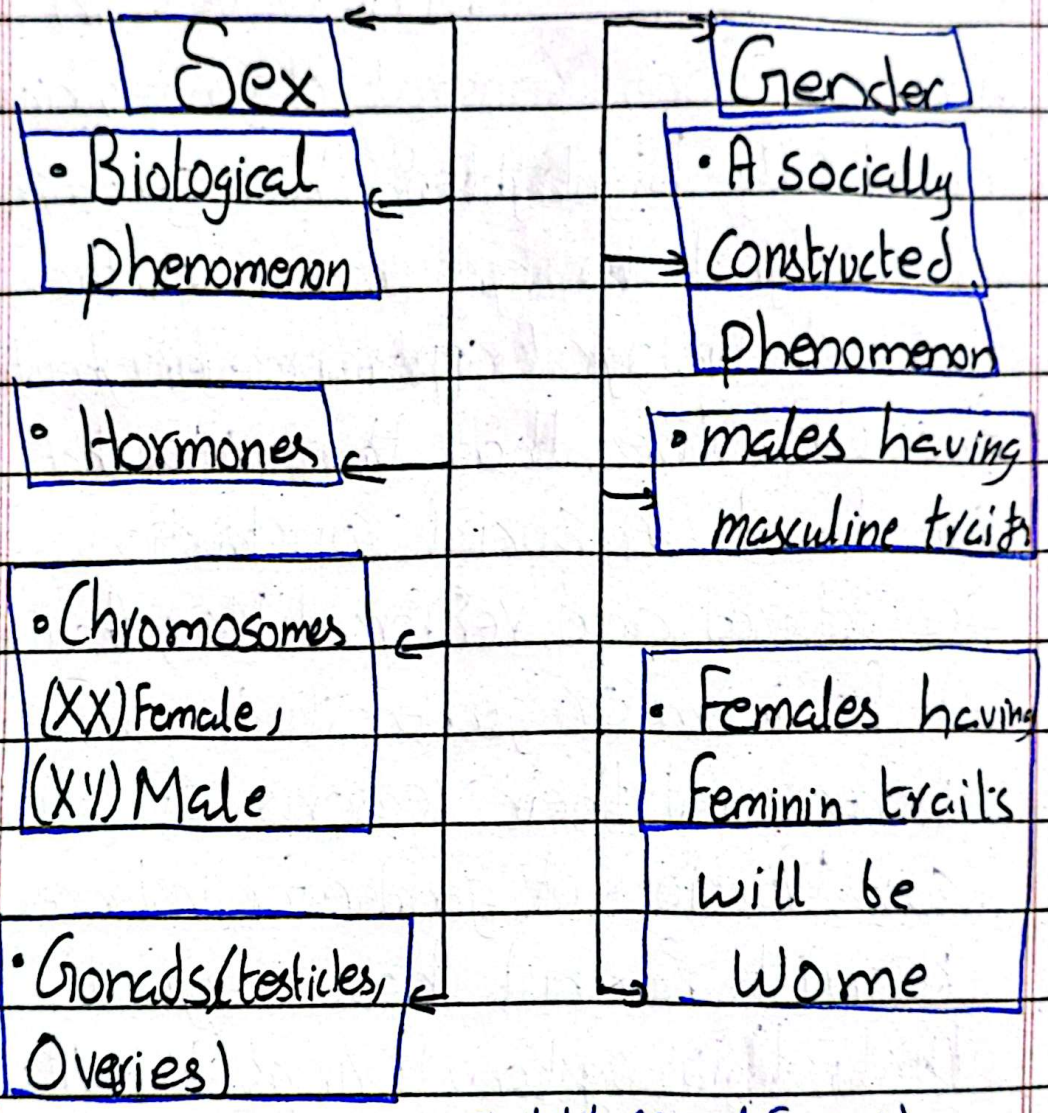 Sex
• Biological
phenomenon
• Hormones
• Chromosomes
(XX) Female,
(XY) Male
• Gonads (testicles,
Overies)
Gender
• A socially
constructed
phenomenon
• males having
masculine traits
• Females having
Feminin traits
will be
Wome